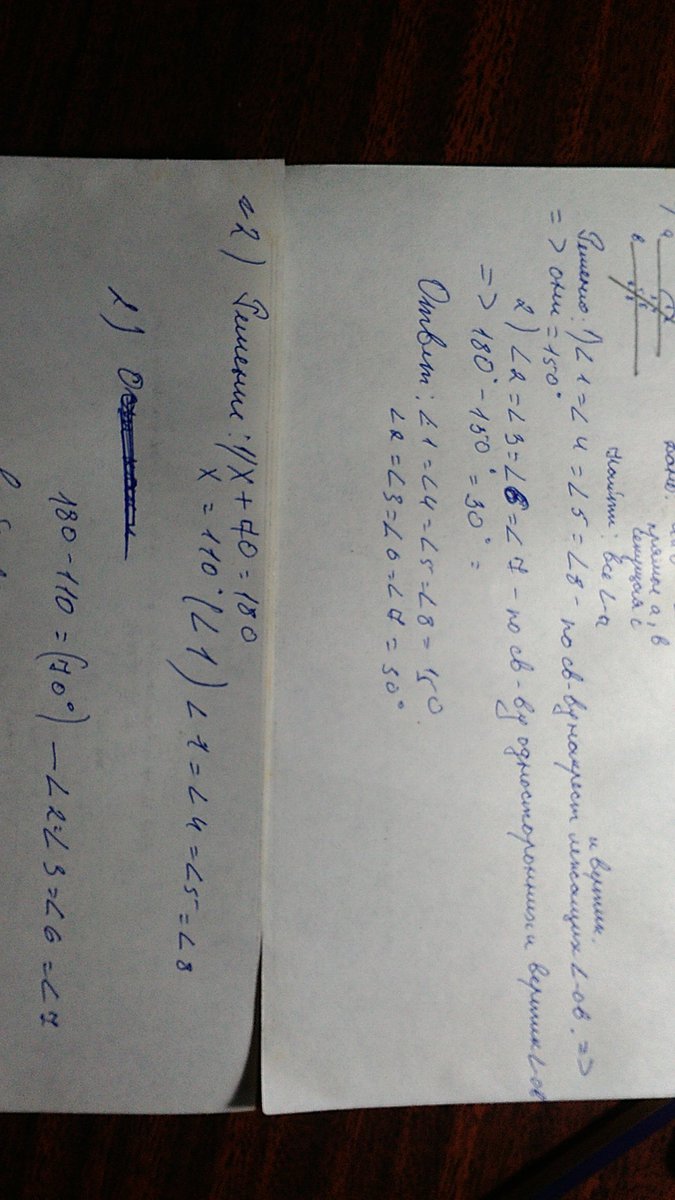 1) a
в
прямые a, в
секущая c
Найти: все ∠-ы
и вертик.
Решение: 1) ∠1 = ∠4 = ∠5 = ∠8 - по св-ву накрест лежащих ∠-ов. =>
=> они = 150°
2) ∠2 = ∠3 = ∠6 = ∠7 - по св-ву односторонних и вертик ∠-ов
=> 180° - 150° = 30° =
Ответ: ∠1 = ∠4 = ∠5 = ∠8 = 150
∠2 = ∠3 = ∠6 = ∠7 = 30°
~2) Решение: 1) x + 70 = 180
x = 110° (∠1) ∠1 = ∠4 = ∠5 = ∠8
2)
180 - 110 = (70°) — ∠2 = ∠3 = ∠6 = ∠7